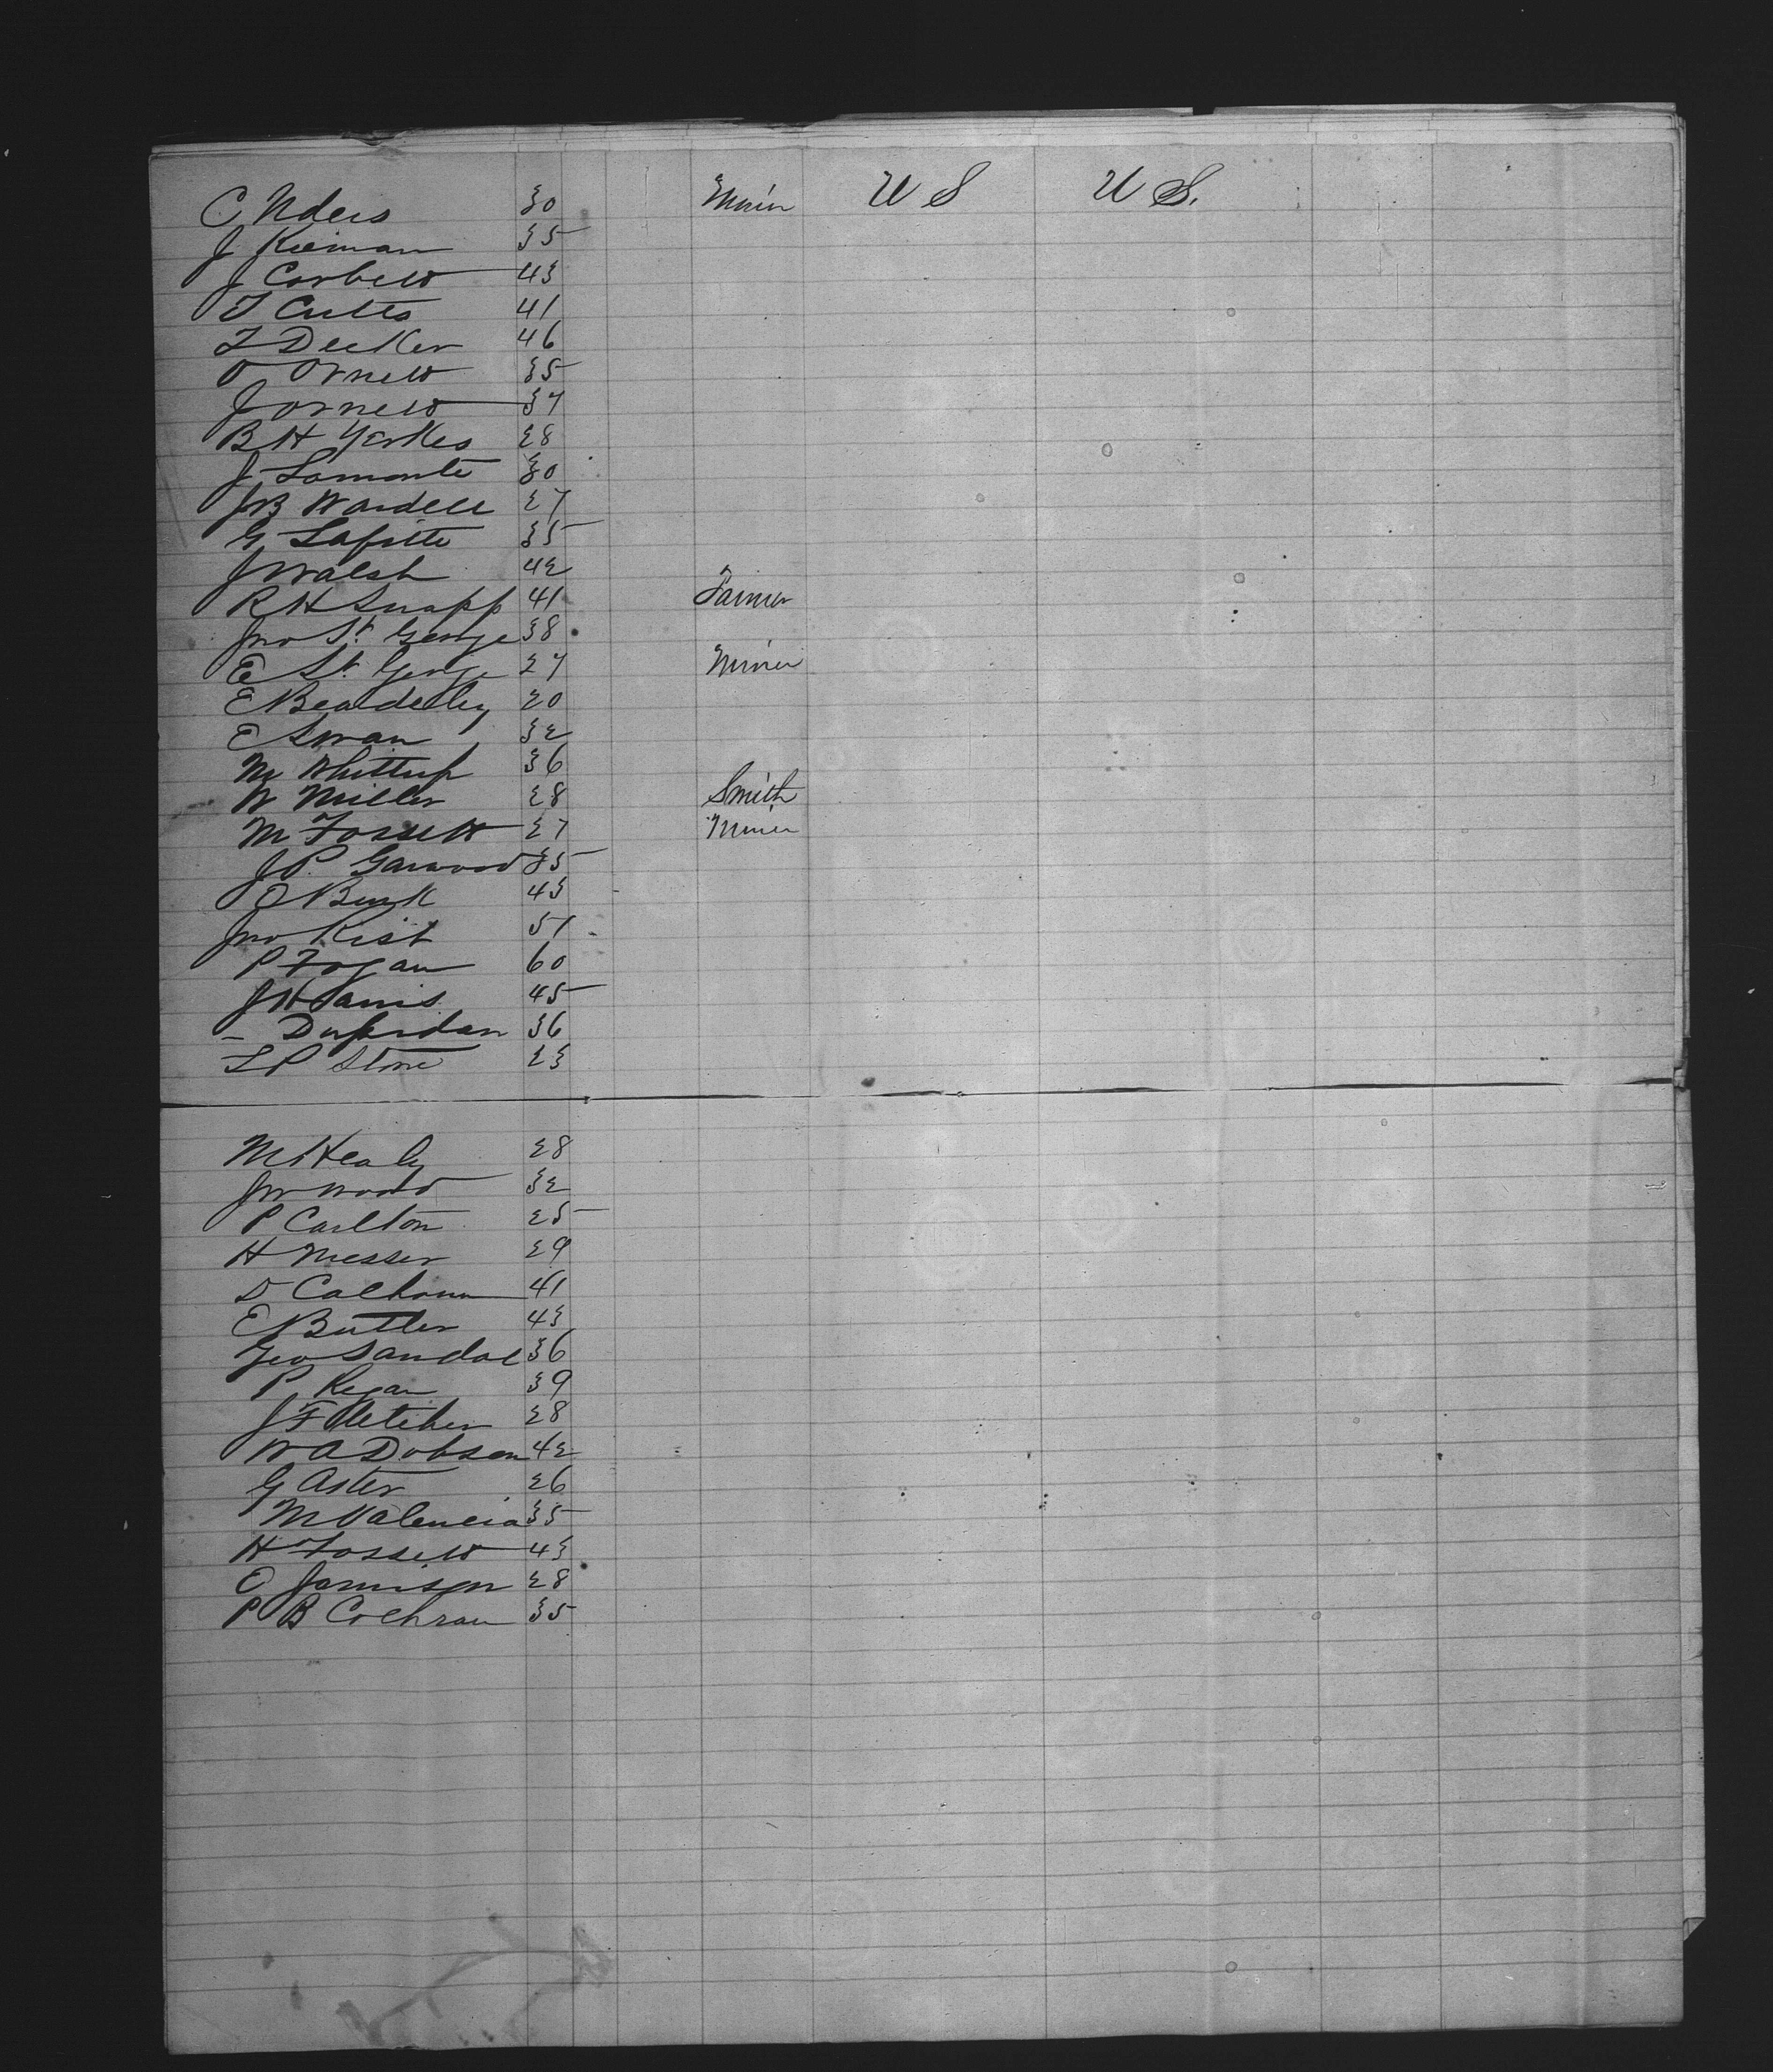 C Nders 30 Miner U S U S.
J Keeinan 35
J Corbett 43
T Cutts 41
L Decker 46
O Ornett 35
J Ornett 37
B H Yerkes 28
J Lamonte 30
J B Wardell 27
G Lafitte 35
J Walsh 42
R H Snapp 41 Farmer
Jno St. George 38
E St. George 27 Miner
E Beardsley 20
E Swan 32
M Whittup 36
W Miller 28 Smith
M Fossett 27 Miner
J P. Garwood 35
O Burk 43
Jno Kist 51
P Fogan 60
J Harris 45
- Duperdan 36
L P Stone 23
M Healy 28
J W Wood 32
P Carlton 25
H Messer 29
D Calhoun 41
E Butler 43
Geo Sandal 36
P Regan 39
J Fletcher 28
W A Dobson 42
G Aster 26
M Valencia 35
H Fossett 43
O Jamison 28
P B Cochran 35